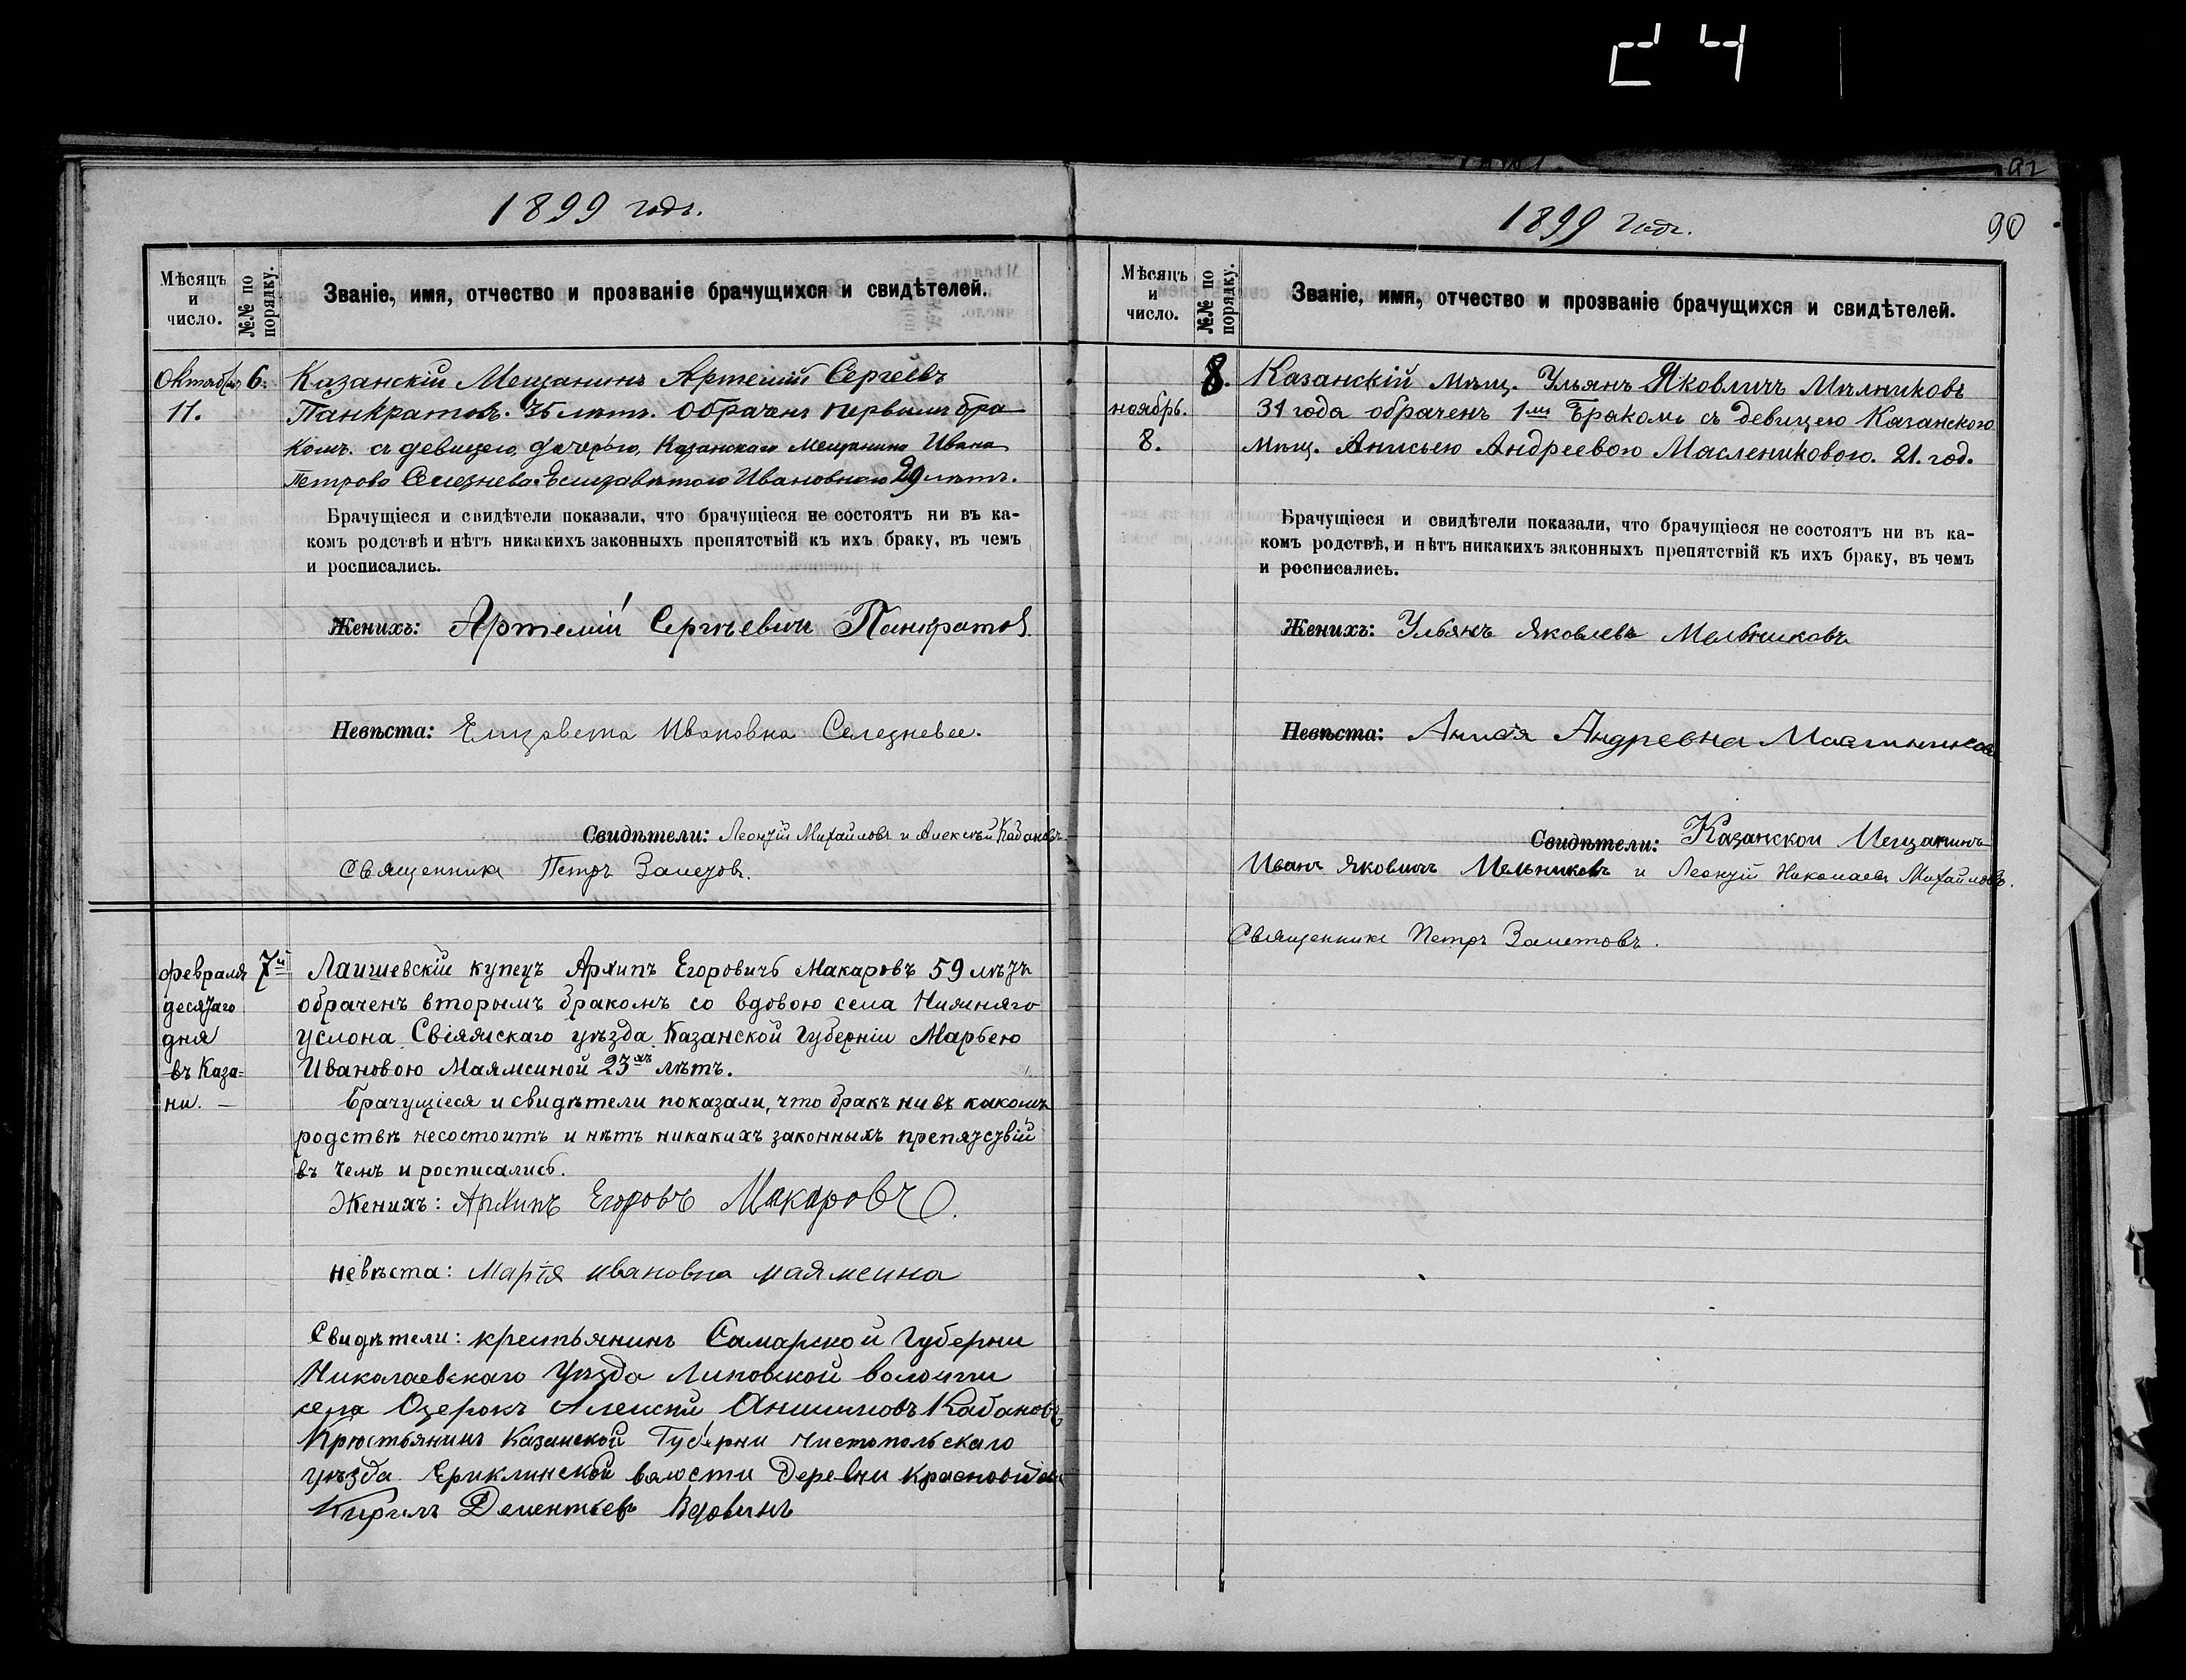 24
1899 годъ.
Мѣсяцъ и число.
№№ по порядку.
Званіе, имя, отчество и прозваніе брачущихся и свидѣтелей.
Октября 6. Казанскій Мещанинъ Артемій Сергѣевъ
11. Панкратовъ. 35 лѣтъ. обрачен первымъ бра
комъ. съ девицею, дочерью, Казанскаго Мещанина Ивана
Петрова Селезнева Елизаветою Ивановною 29 лѣтъ.
Брачущіеся и свидѣтели показали, что брачущіеся не состоятъ ни въ ка-
комъ родствѣ и нѣтъ никакихъ законныхъ препятствій къ ихъ браку, въ чемъ
и росписались.
Женихъ: Артемій Сергѣевич Панкратов.
Невѣста: Елизавета Ивановна Селезнева.
Свидѣтели: Леонтій Михайловъ и Алексѣй Кабановъ
Священникъ Петръ Залетов.
февраля 7й Лаишевскій купецъ Архипъ Егоровичъ Макаровъ 59 лѣтъ
десятаго обраченъ вторымъ бракомъ со вдовою села Нижняго
дня Услона Свіяжскаго уѣзда Казанской Губерніи Марьею
въ Каза= Ивановою Маямсиной 23хъ лѣтъ.
ни. — Брачущіеся и свидѣтели показали, что бракъ ни въ какомъ
родствѣ несостоитъ и нѣтъ никакихъ законныхъ препятствій
въ чемъ и росписались.
Женихъ: Архипъ Егоровъ Макаровъ.
невѣста: Марія ивановна маямсина
Свидѣтели: крестьянинъ Самарской Губерни
Николаевскаго Уѣзда Липовской волости
села Озерокъ Алексѣй Кабановъ
Казанской Губерни Чистопольскаго
уѣзда Ериклинской волости Деревни
Кирилъ Дементьевъ Вдовинъ
1899 годъ.
90
Мѣсяцъ и число.
№№ по порядку.
Званіе, имя, отчество и прозваніе брачущихся и свидѣтелей.
8. Казанскій мѣщ. Ульянъ Яковличъ Мѣлниковъ
ноябрь. 31 года обраченъ 1мъ Бракомъ съ девицею Казанского
8. мѣщ. Анисьею Андреевою Маслениковою. 21. год.
Брачущіеся и свидѣтели показали, что брачущіеся не состоятъ ни въ ка-
комъ родствѣ, и нѣтъ никакихъ законныхъ препятствій къ ихъ браку, въ чемъ
и росписались.
Женихъ: Ульянъ Яковлевъ Мельниковъ
Невѣста: Андревна
Свидѣтели: Казанской Мещанинъ
Иванъ Яковличъ Мельниковъ и Леонтій Николаевъ Михайловъ.
Священникъ Петръ Залетовъ.